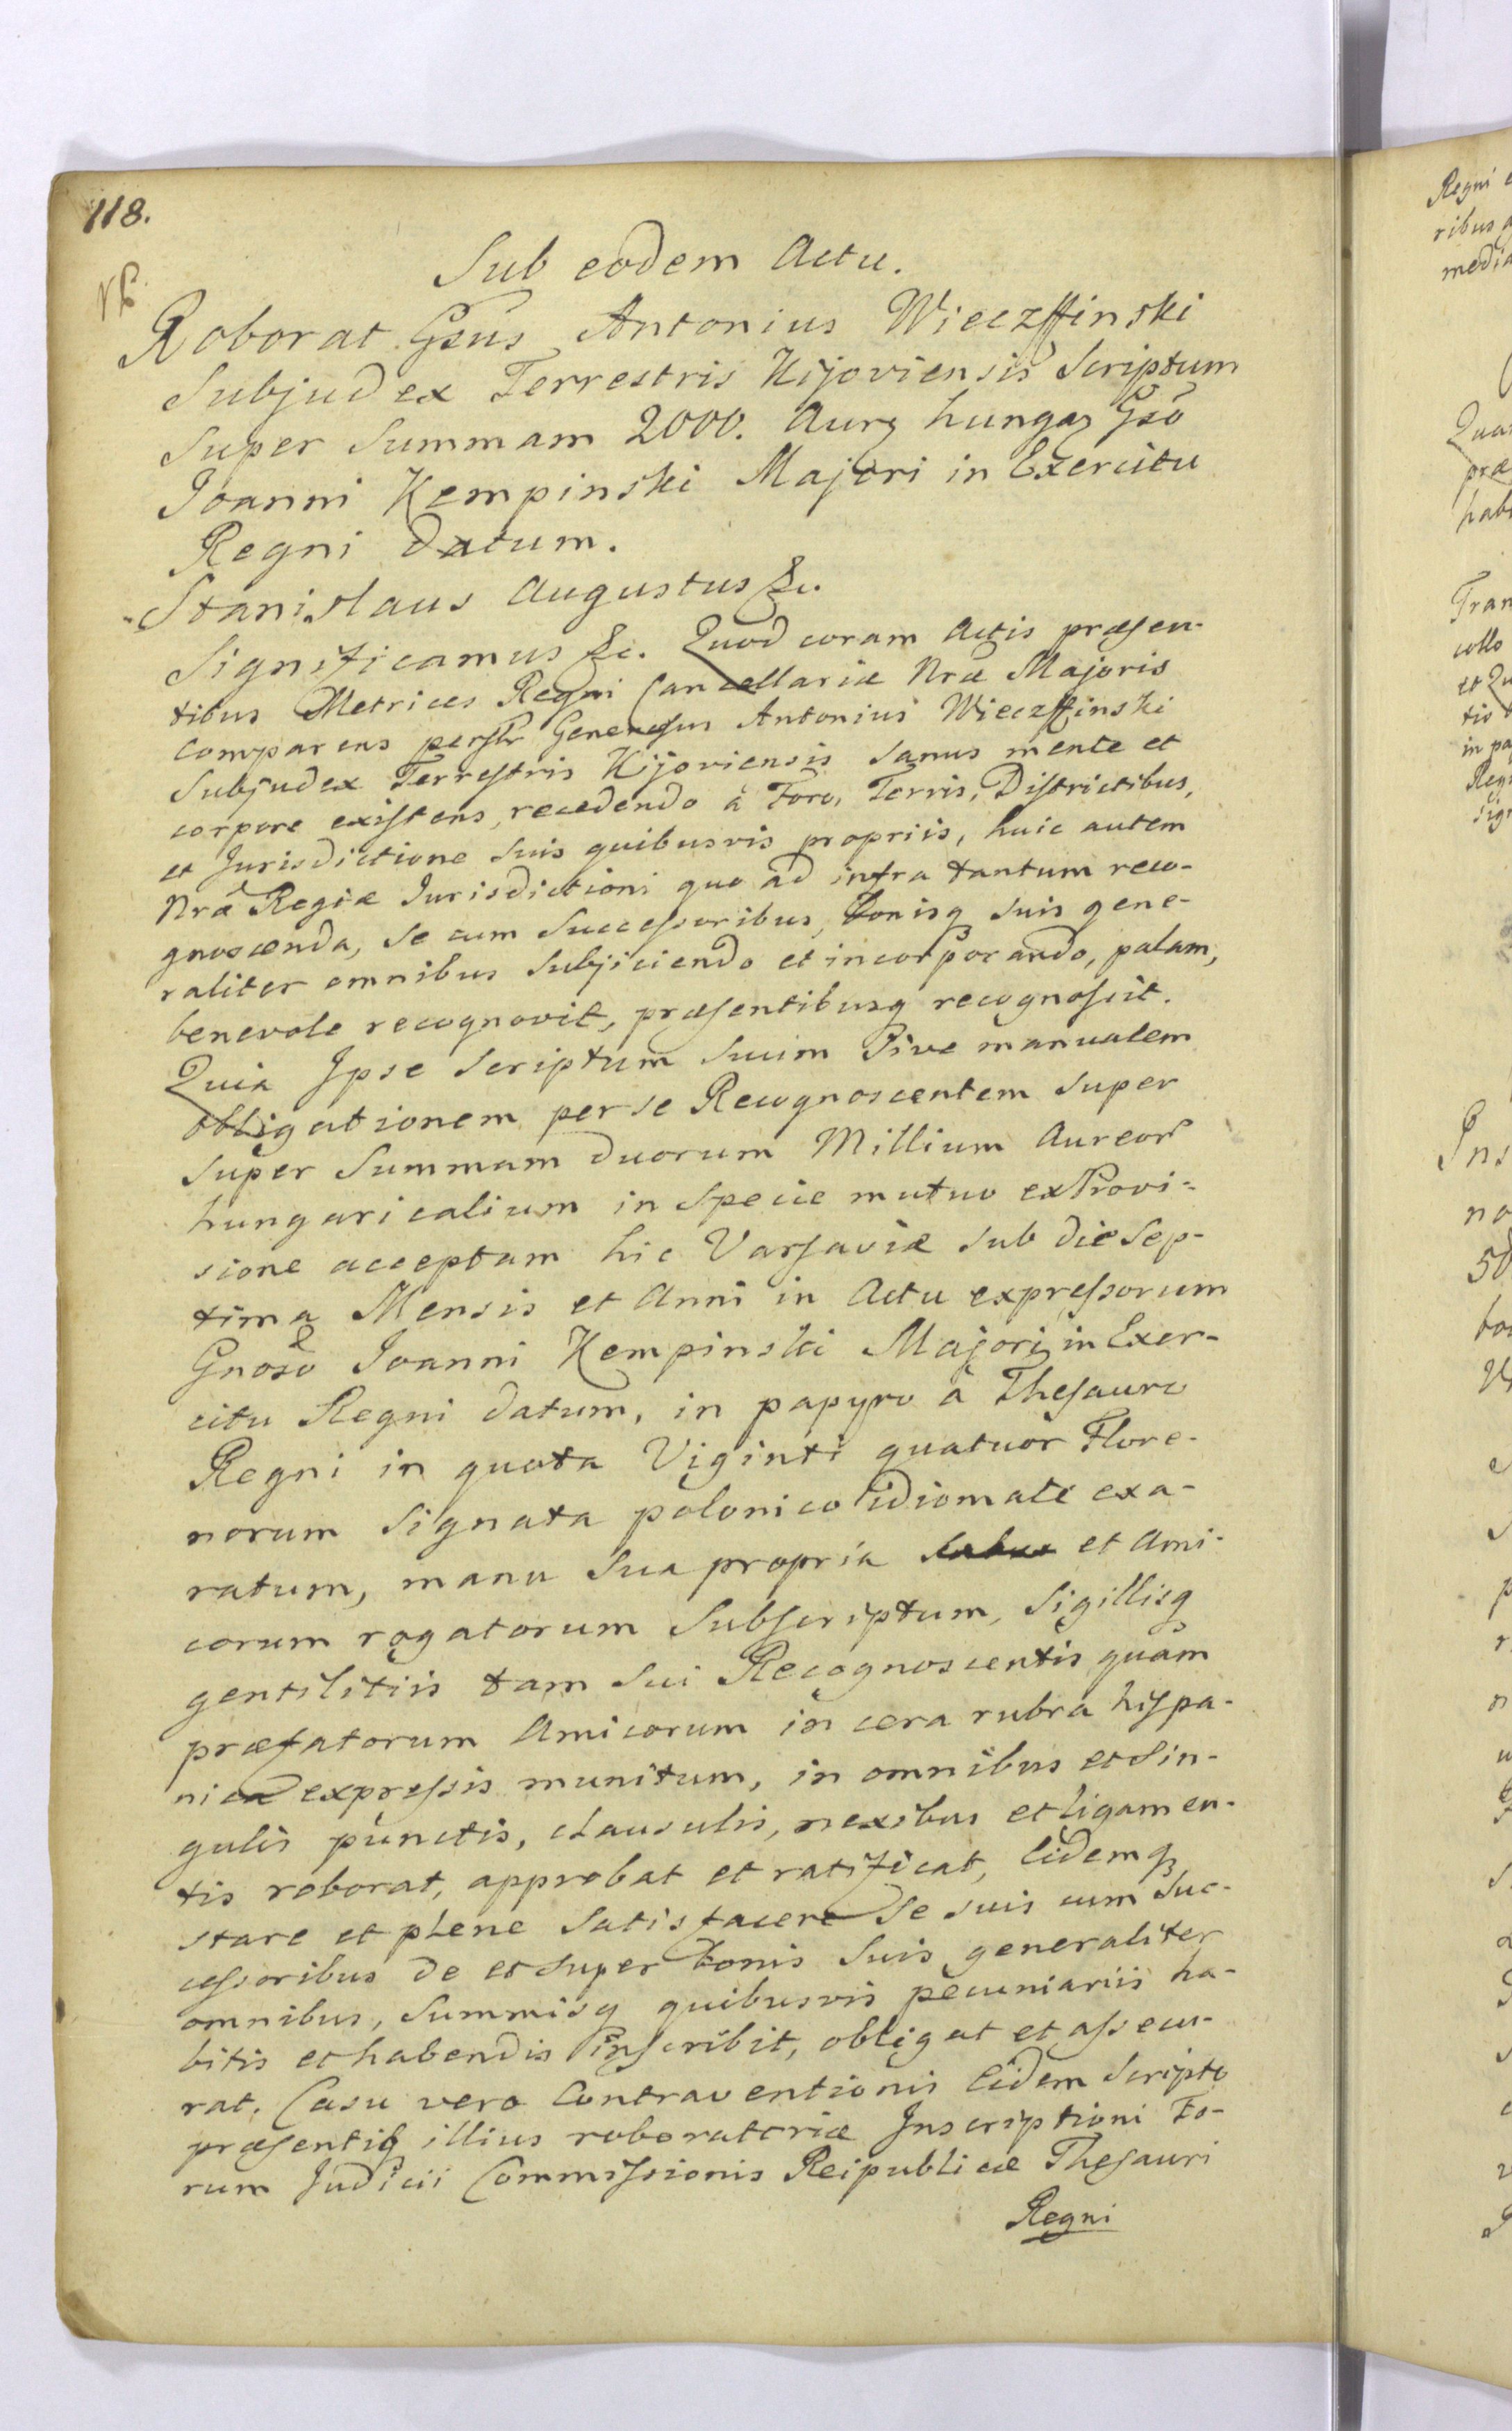 118.
Sub eodem Actu.
Roborat Gsus Antonius Wieczffinski
Subjudex Terrestris Kijoviensis Scriptum
super Summam 2000. Aurz hungaz Gso
Joanni Kempinski Majori in Exercitu
Regni datum.
Stanislaus Augustus &c.
Significamus &c. Quod coram Actis præsen-
tibus Metrices Regni Cancellariæ Nræ Majoris
comparens perslr Generosus Antonius Wieczffinski
Subjudex Terrestris Kijoviensis sanus mente et
corpore existens, recedendo à Foro, Terris, Districtibus,
et Jurisdictione suis quibusvis propriis, huic autem
Nræ Regiæ Jurisdictioni quo ad infra tantum reco-
gnoscenda, se cum Successoribus, bonisq suis gene-
raliter omnibus subjiciendo et incorporando, palam,
benevole recognovit, præsentibusq recognoscit.
Quia Ipse Scriptum suum sive manualem
obligationem per se Recognoscentem super
super Summam duorum Millium Aureor
hungaricalium in specie mutuo ex Provi-
sione acceptam hic Varsaviæ sub die Sep-
tima Mensis et Anni in Actu expressorum
Gnoso Joanni Kempinski Majori in Exer-
citu Regni datum, in papyro à Thesauro
Regni in quota Viginti quatuor Flore-
norum signata polonico idiomate exa-
ratum, manu sua propria et Ami-
corum rogatorum subscriptum, Sigillisq
gentilitiis tam sui Recognoscentis quàm
præfatorum Amicorum in cera rubra hispa-
nica expressis munitum, in omnibus et sin-
gulis punctis, clausulis, nexibus et ligamen-
tis roborat, approbat et ratificat, Eidemq
stare et plene satisfacere se suis cum Suc-
cessoribus de et super bonis suis generaliter
omnibus, Summisq quibusvis pecuniariis ha-
bitis et habendis inscribit, obligat et assecu-
rat. Casu vero Contraventionis Eidem Scripto
præsentiq illius roboratoriæ Inscriptioni Fo-
rum Judicii Commissionis Reipublicæ Thesauri
Regni